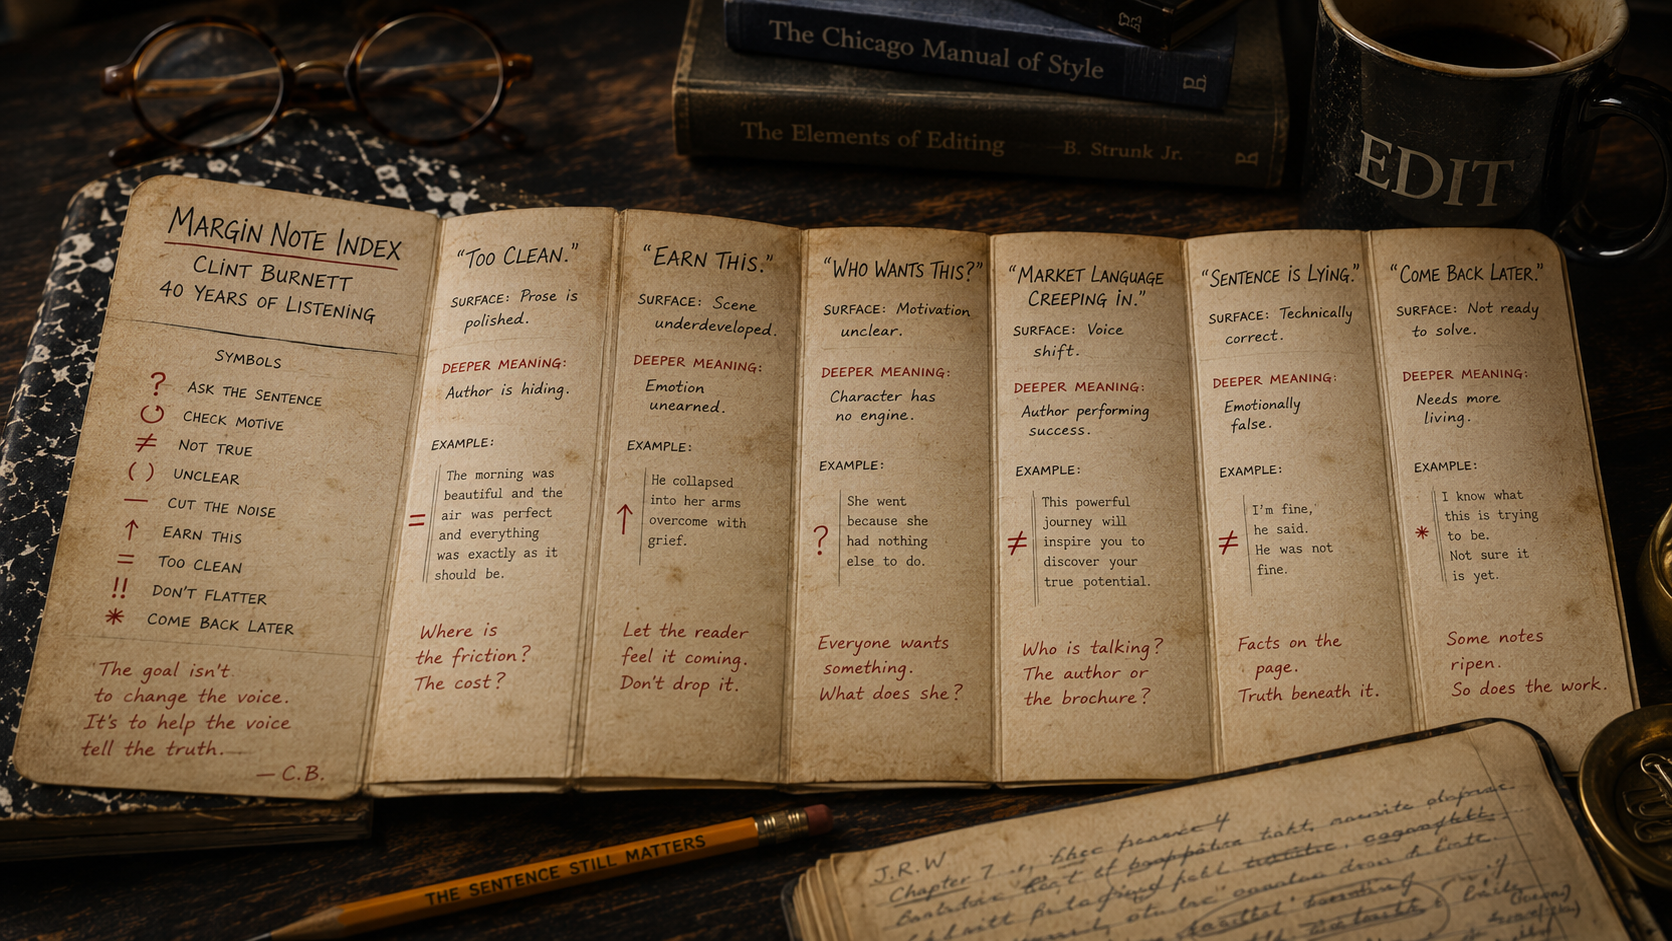 The Chicago Manual of Style
The Elements of Editing B. Strunk Jr.
EDIT
MARGIN NOTE INDEX
CLINT BURNETT
40 YEARS OF LISTENING
SYMBOLS
? ASK THE SENTENCE
CHECK MOTIVE
≠ NOT TRUE
( ) UNCLEAR
— CUT THE NOISE
↑ EARN THIS
= TOO CLEAN
!! DON'T FLATTER
* COME BACK LATER
The goal isn't
to change the voice.
It's to help the voice
tell the truth.
— C.B.
"TOO CLEAN."
SURFACE: Prose is
polished.
DEEPER MEANING:
Author is hiding.
EXAMPLE:
The morning was
beautiful and the
air was perfect
=
and everything
was exactly as it
should be.
Where is
the friction?
The cost?
"EARN THIS."
SURFACE: Scene
underdeveloped.
DEEPER MEANING:
Emotion
unearned.
EXAMPLE:
He collapsed
into her arms
↑ overcome with
grief.
Let the reader
feel it coming.
Don't drop it.
"WHO WANTS THIS?"
SURFACE: Motivation
unclear.
DEEPER MEANING:
Character has
no engine.
EXAMPLE:
She went
because she
? had nothing
else to do.
Everyone wants
something.
What does she?
"MARKET LANGUAGE
CREEPING IN."
SURFACE: Voice
shift.
DEEPER MEANING:
Author performing
success.
EXAMPLE:
This powerful
journey will
≠ inspire you to
discover your
true potential.
Who is talking?
The author or
the brochure?
"SENTENCE IS LYING."
SURFACE: Technically
correct.
DEEPER MEANING:
Emotionally
false.
EXAMPLE:
I'm fine,
he said.
≠ He was not
fine.
Facts on the
page.
Truth beneath it.
"COME BACK LATER."
SURFACE: Not ready
to solve.
DEEPER MEANING:
Needs more
living.
EXAMPLE:
I know what
this is trying
* to be.
Not sure it
is yet.
Some notes
ripen.
So does the work.
THE SENTENCE STILL MATTERS
J.R.W
Chapter 7